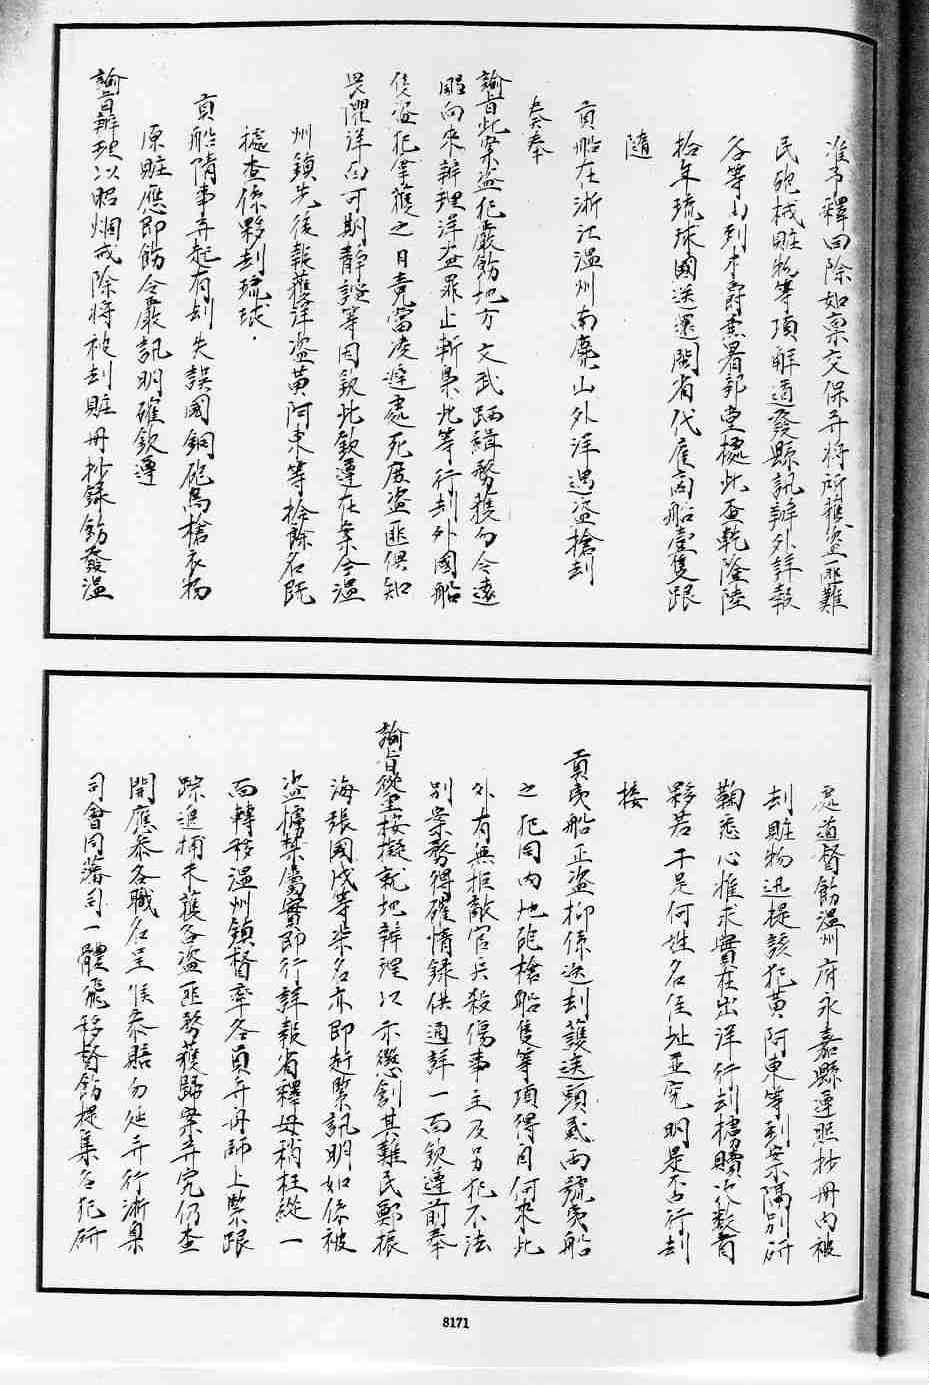 准予釋回除如稟交保并將所獲盜匪難
民砲械賍物等項解道發縣訊辦外詳報
各等由到本爵兼署部堂據此查乾隆陸
拾年琉球國送還閩省代雇商船壹隻跟
隨
貢船在浙江温州南麂山外洋遇盜搶刦
奏奉
諭旨此案盜犯嚴飭地方文武跴緝務獲勿令遠
颺向來辦理洋盜罪止斬梟此等行刦外國船
隻盜犯拿獲之日竟當凌遲處死庶盜匪俱知
畏懼洋面可期靜謐等因欽此欽遵在案今温
州鎮先後報獲洋盜黄阿東等拾餘名既
據查係夥刦琉球
貢船隋事弁起有刦失護國銅砲鳥槍衣物
原賍應即飭令嚴訊明確欽遵
諭旨辦理以昭烱戒除將被刦賍冊抄錄飭發温
處道督飭温州府永嘉縣遵照抄冊内被
刦賍物迅提該犯黄阿東等到案隔别研
鞫悉心推求實在出洋行刦擄贖次數首
夥若干是何姓名住址並究明是否行刦
接
貢夷船正盜抑係迭刦護送頭貳兩號夷船
之犯同内地砲槍船隻等項得自何來此
外有無拒敵官兵殺傷事主及另犯不法
别案務得確情錄供通詳一面欽遵前奉
諭旨從重按擬就地辦理以示懲創其難民鄭振
海張國茂等柒名亦即赶緊訊明如係被
盜擄禁屬實即行詳報省釋毋稍枉縱一
面轉移温州鎮督率各員弁舟師上緊跟
踪追捕未獲各盜匪務獲歸案弁究仍查
開應叅各職名呈候叅賠勿延并行浙臬
司會同藩司一體飛移督飭提集各犯研
8171